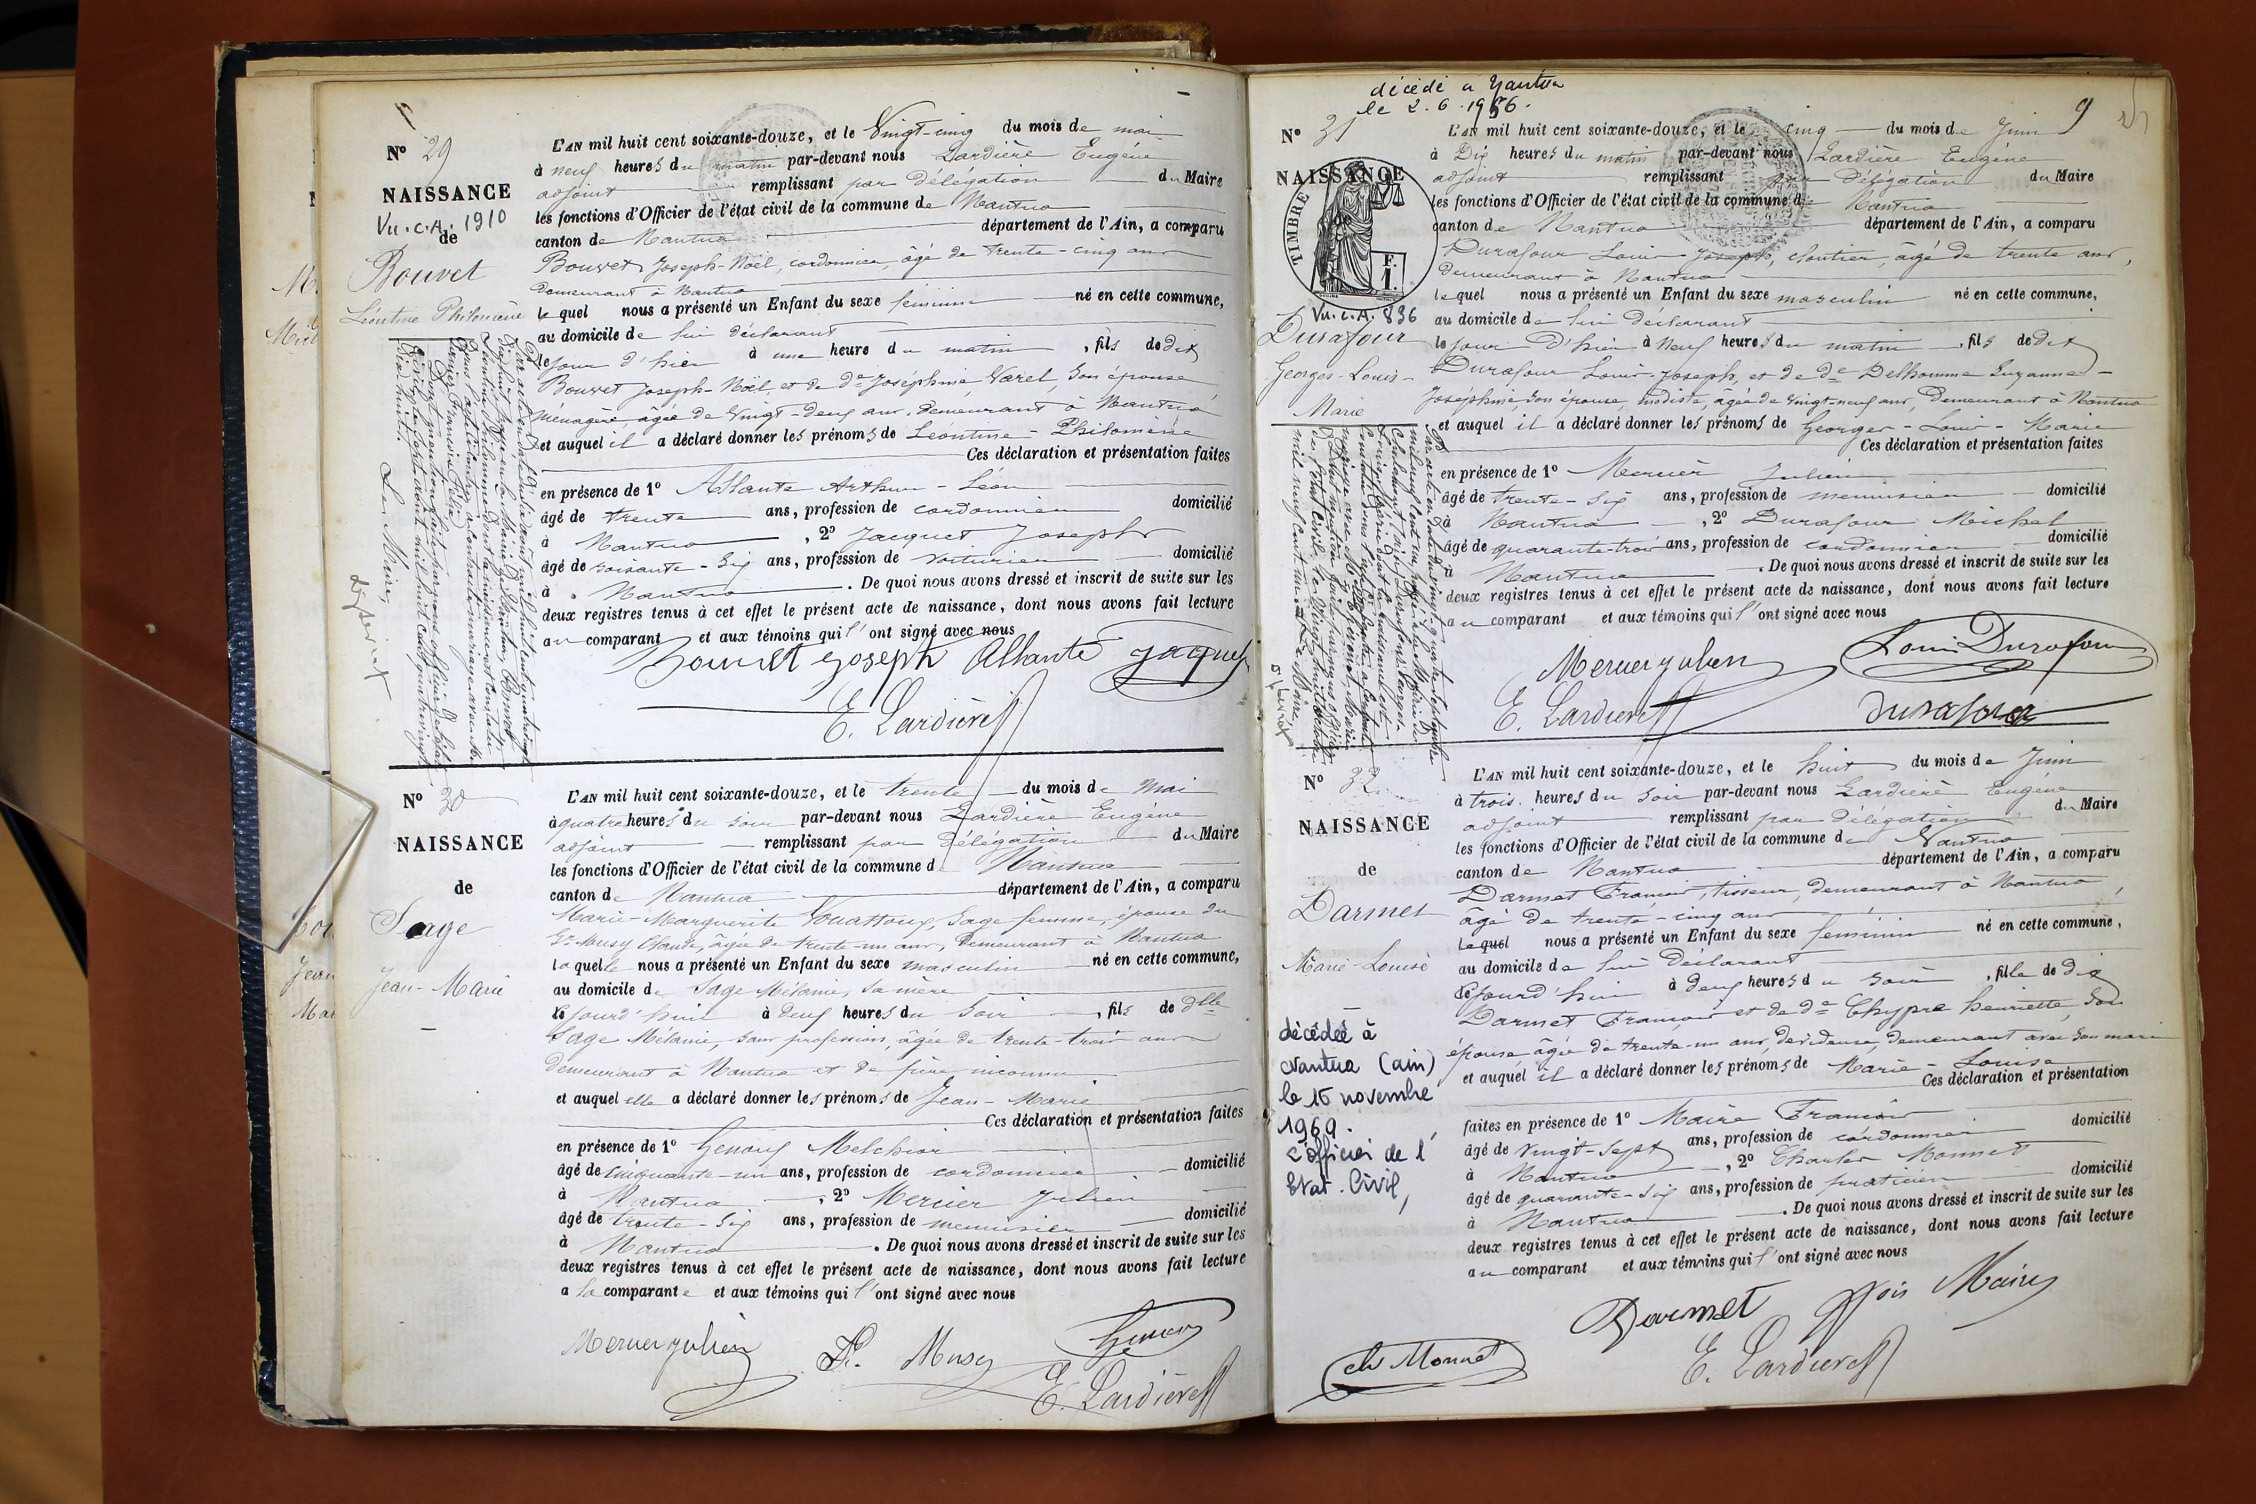 Nº 29
NAISSANCE
Vu. C.A. 1910
de
Bouvet
Léontine Philomène
L'AN mil huit cent soixante-douze, et le Vingt-cinq du mois de mai
à neuf heures du matin par-devant nous Lardière Eugène
adjoint remplissant par délégation du Maire
les fonctions d'Officier de l'état civil de la commune de Nantua
canton de Nantua département de l'Ain, a comparu
Bouvet Joseph-Noël, cordonnier, âgé de trente-cinq ans
demeurant à Nantua
lequel nous a présenté un Enfant du sexe féminin né en cette commune,
au domicile de lui déclarant
le jour d'hier à une heure du matin, fils de dit
Bouvet Joseph-Noël, et de de Joséphine Varel, son épouse
ménagère, âgée de Vingt-deux ans, demeurant à Nantua
et auquel il a déclaré donner les prénoms de Léontine-Philomène
Ces déclaration et présentation faites
en présence de 1º Allante Arthur-Léon
âgé de trente ans, profession de cordonnier domicilié
à Nantua, 2º Jacquet Joseph
âgé de soixante-six ans, profession de voiturier domicilié
à Nantua. De quoi nous avons dressé et inscrit de suite sur les
deux registres tenus à cet effet le présent acte de naissance, dont nous avons fait lecture
au comparant et aux témoins qui l'ont signé avec nous
Bouvet Joseph Allante Jaquet
E. Lardière
Le Maire,
Nº 30
NAISSANCE
de
Sage
Jean-Marie
L'AN mil huit cent soixante-douze, et le trente du mois de Mai
à quatre heures du soir par-devant nous Lardière Eugène
adjoint remplissant par délégation du Maire
les fonctions d'Officier de l'état civil de la commune d Nantua
canton de Nantua département de l'Ain, a comparu
Marie-Marguerite sage femme, épouse du
Sr Musy Claude, âgée de trente-un ans, demeurant à Nantua
laquelle nous a présenté un Enfant du sexe masculin né en cette commune,
au domicile de Sage Mélanie, sa mère
le jourd'hui à deux heures du soir, fils de dlle
Sage Mélanie, sans profession, âgée de trente-trois ans
demeurant à Nantua et de père inconnu
et auquel elle a déclaré donner les prénoms de Jean-Marie
Ces déclaration et présentation faites
en présence de 1º Genoux Melchior
âgé de cinquante-un ans, profession de cordonnier domicilié
à Nantua, 2º Mercier Julien
âgé de trente-six ans, profession de menuisier domicilié
à Nantua. De quoi nous avons dressé et inscrit de suite sur les
deux registres tenus à cet effet le présent acte de naissance, dont nous avons fait lecture
a la comparante et aux témoins qui l'ont signé avec nous
Mercier Julien
Musy
E. Lardière
décédé a Nantua
le 2.6.1956.
9
Nº 31
NAISSANCE
TIMBRE
F.
1.
Vu. C.A. 836
Durafour
Georges-Louis-
Marie
L'AN mil huit cent soixante-douze, et le cinq du mois de Juin
à Dix heures du matin par-devant nous Lardière Eugène
adjoint remplissant par délégation du Maire
les fonctions d'Officier de l'état civil de la commune de Nantua
canton de Nantua département de l'Ain, a comparu
Durafour Louis-Joseph, cloutier, âgé de trente ans,
demeurant à Nantua
lequel nous a présenté un Enfant du sexe masculin né en cette commune,
au domicile de lui déclarant
le jour d'hier à Neuf heures du matin, fils de dit
Durafour Louis-Joseph, et de de Delhomme Suzanne-
Joséphine son épouse, modiste, âgée de vingt-neuf ans, demeurant à Nantua
et auquel il a déclaré donner les prénoms de Georges-Louis-Marie
Ces déclaration et présentation faites
en présence de 1º Mercier Julien
âgé de trente-six ans, profession de menuisier domicilié
à Nantua, 2º Durafour Michel
âgé de quarante-trois ans, profession de cordonnier domicilié
à Nantua. De quoi nous avons dressé et inscrit de suite sur les
deux registres tenus à cet effet le présent acte de naissance, dont nous avons fait lecture
au comparant et aux témoins qui l'ont signé avec nous
Mercier Julien Louis Durafour
E. Lardière Durafour
Nº 32
NAISSANCE
de
Darmet
Marie-Louise
décédée à
Nantua (ain)
le 15 novembre
1969.
L'officier de l'
Etat-Civil,
L'AN mil huit cent soixante-douze, et le huit du mois de Juin
à trois heures du soir par-devant nous Lardière Eugène
adjoint remplissant par délégation du Maire
les fonctions d'Officier de l'état civil de la commune de Nantua
canton de Nantua département de l'Ain, a comparu
Darmet François, tisseur, demeurant à Nantua,
âgé de trente-cinq ans
lequel nous a présenté un Enfant du sexe féminin né en cette commune,
au domicile de lui déclarant
le jourd'hui à deux heures du soir, fille de dit
Darmet François et de de Chypre henriette, son
épouse âgée de trente-un ans, dévideuse, demeurant avec son mari
et auquel il a déclaré donner les prénoms de Marie-Louise
Ces déclaration et présentation
faites en présence de 1º Maire François
âgé de vingt-sept ans, profession de cordonnier domicilié
à Nantua, 2º Charles Monnet
âgé de quarante-six ans, profession de praticien domicilié
à Nantua. De quoi nous avons dressé et inscrit de suite sur les
deux registres tenus à cet effet le présent acte de naissance, dont nous avons fait lecture
au comparant et aux témoins qui l'ont signé avec nous
Darmet fçois Maire
ch Monnet E. Lardière